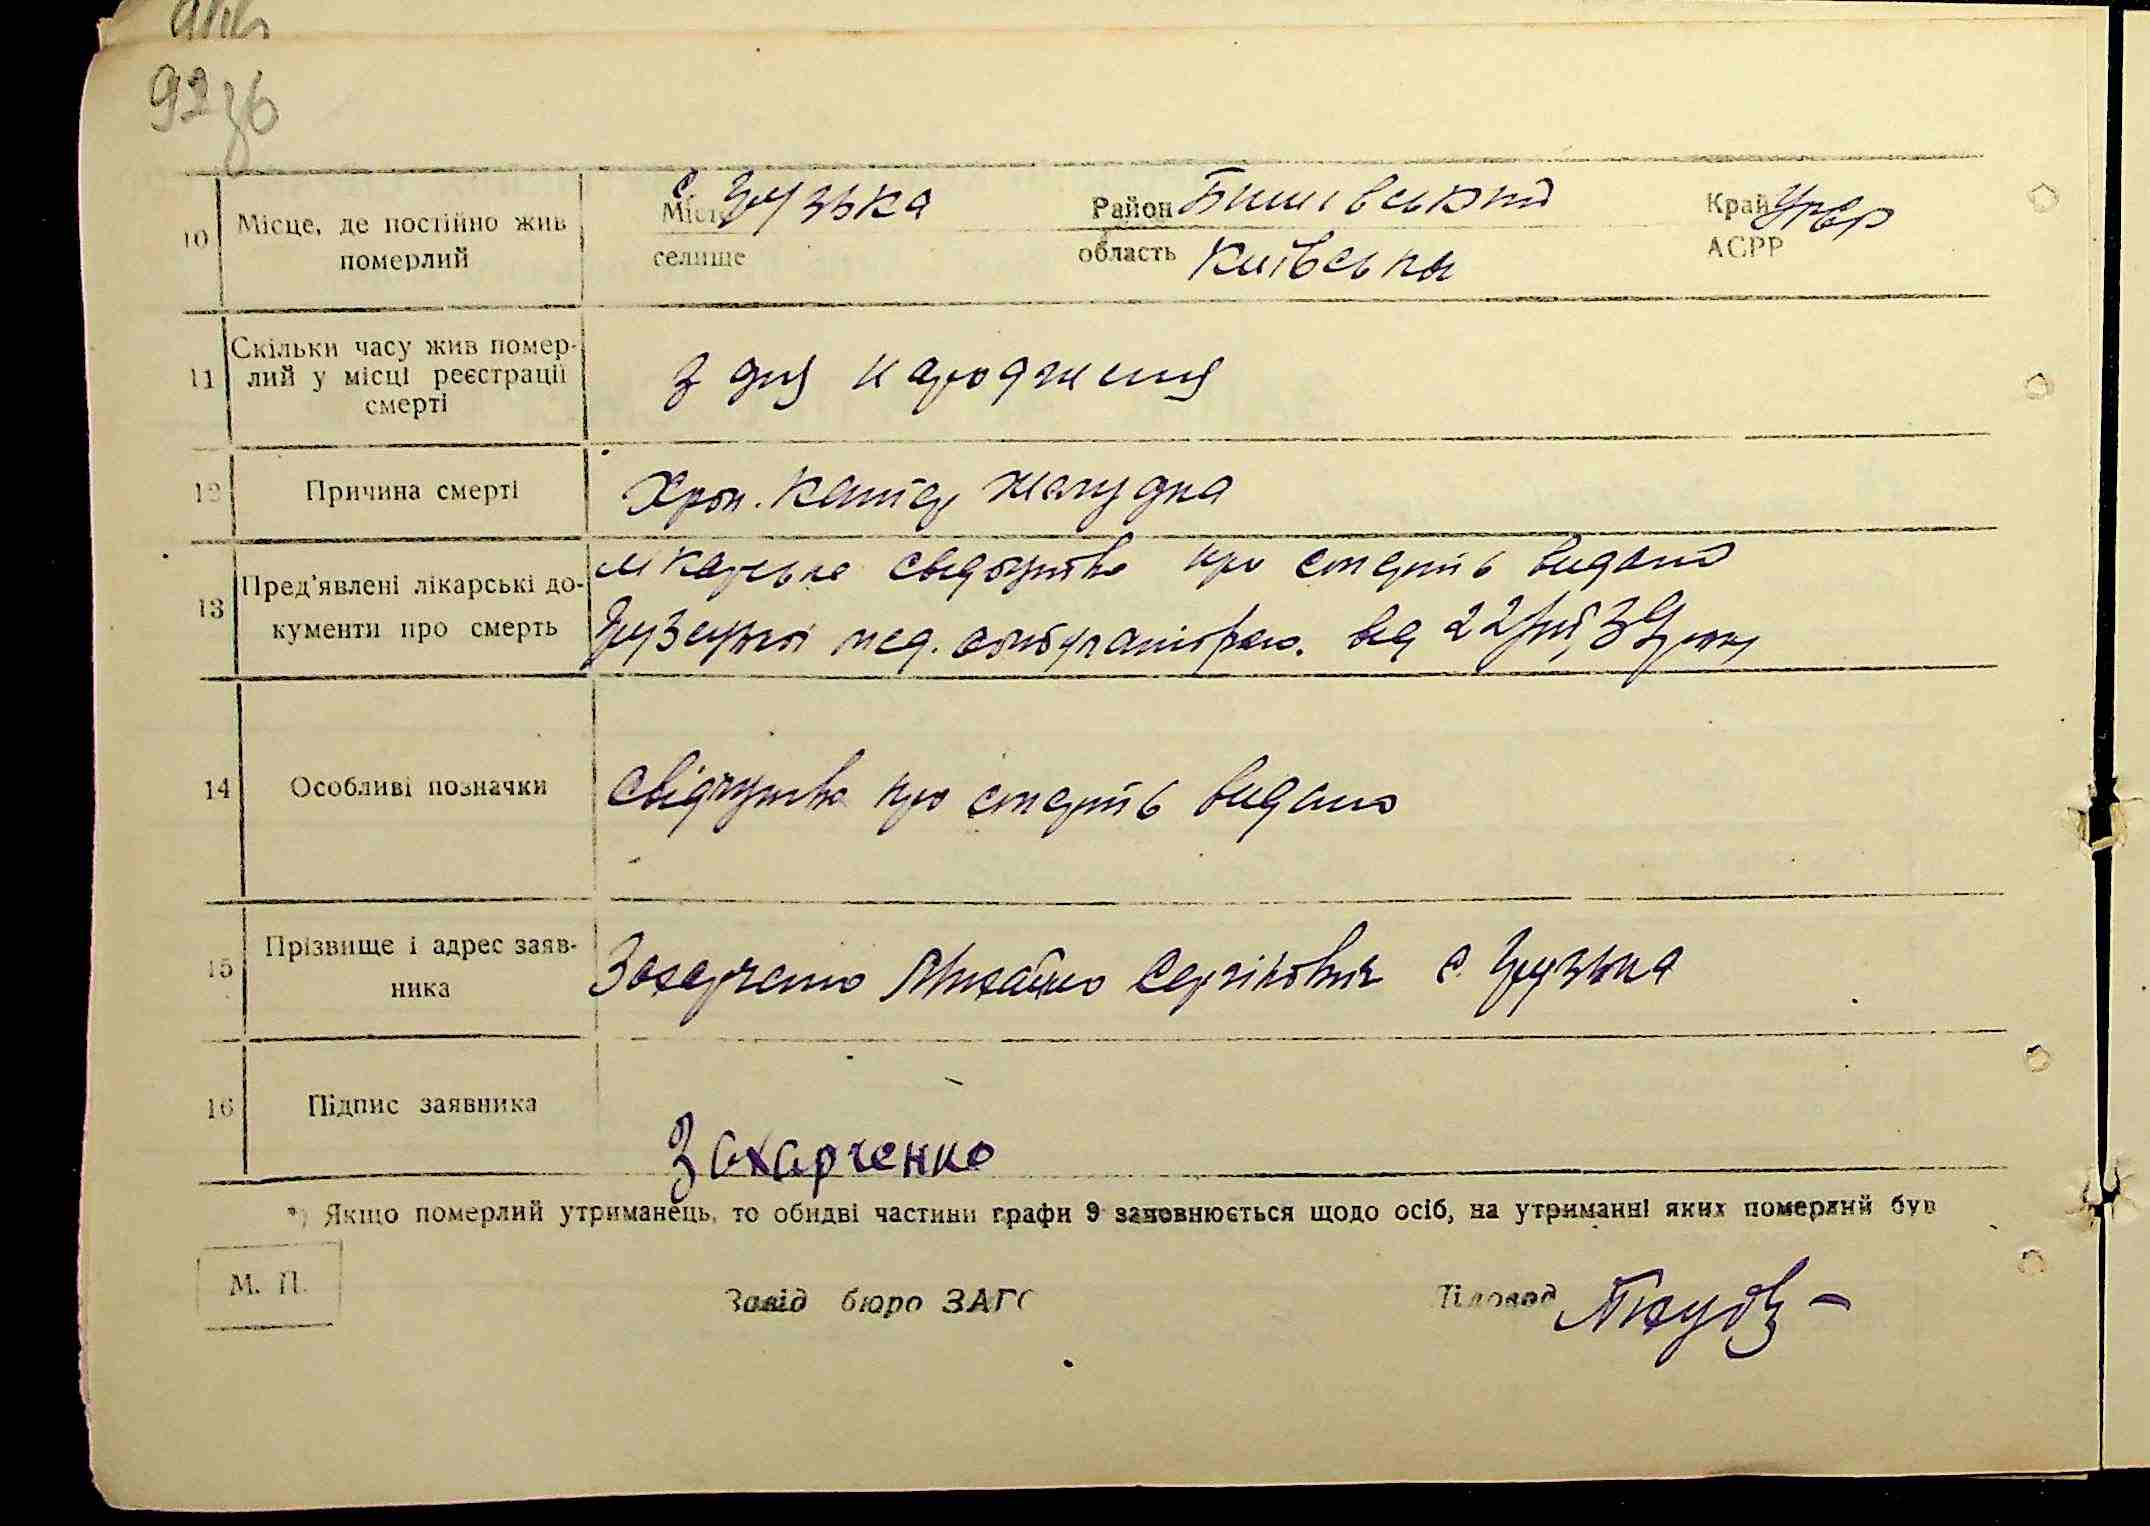 92зв
10 Місце, де постійно жив померлий
Місто с. Грузька Район Бишівський Край УРСР
селище область Київська АСРР
11 Скільки часу жив помер-
лий у місці реєстрації
смерті
з дня народження
12 Причина смерті Хрон. Катар желудка
13 Пред'явлені лікарські до-
кументи про смерть
лікарське свідоцтво про смерть видано
Грузькою мед. амбулаторією. від 22/VII 39 року
14 Особливі позначки свідоцтво про смерть видано
15 Прізвище і адрес заяв-
ника
Захарченко Михайло Сергійович с. Грузька
16 Підпис заявника
Захарченко
*) Якщо померлий утриманець, то обидві частини графи 9 заповнюється щодо осіб, на утриманні яких померлий був
М. П. Завід бюро ЗАГС Діловод